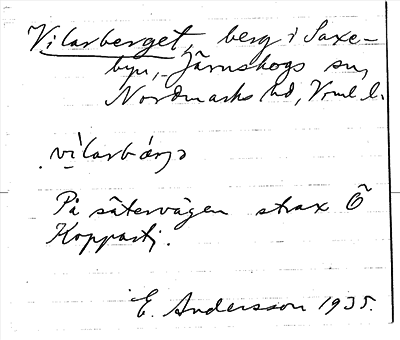 Vilarberget, berg i Saxe-
byn, Järnskogs sn,
Nordmarks hd, Vrml l.
På sätervägen strax Ö
Kopparstj.
E. Andersson 1935.